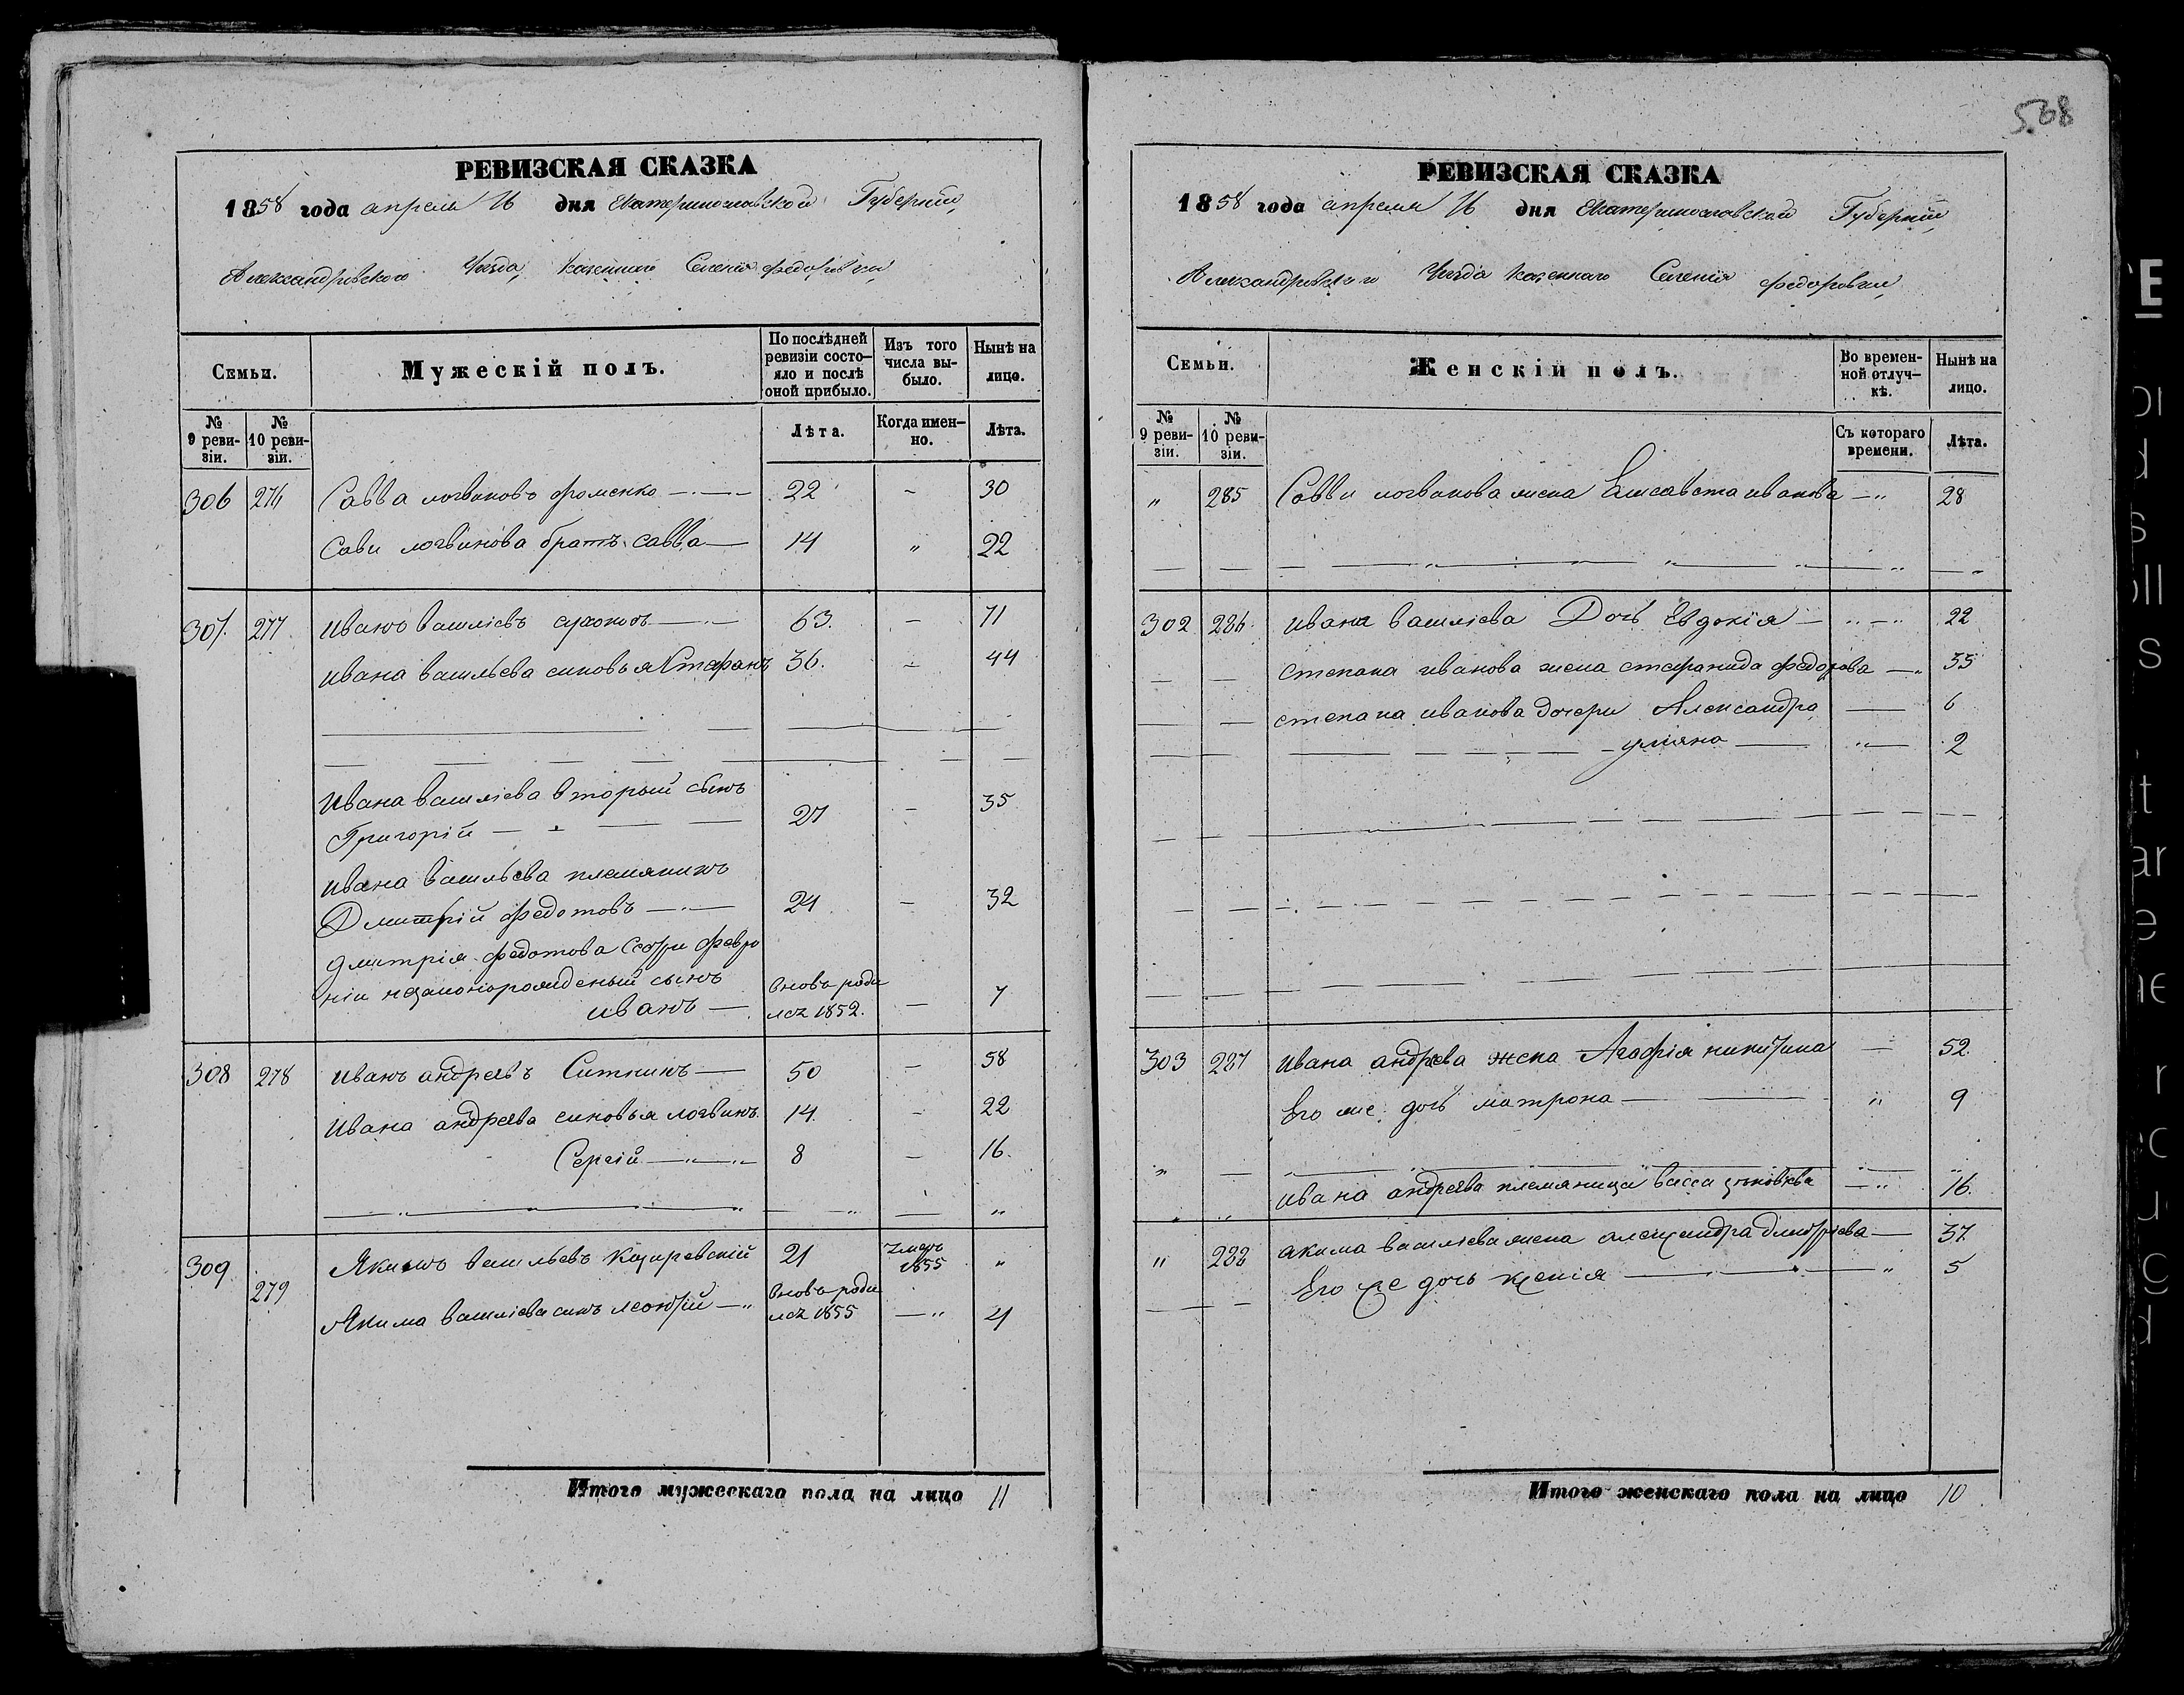 РЕВИЗСКАЯ СКАЗКА
1858 года апреля 16 дня Екатеринославской Губерніи,
Александровского Уезда, казеннаго Селенія Федоровки,
Семьи.
Мужескій полъ.
По послѣдней ревизіи состо-
яло и послѣ
оной прибыло.
Изъ того
числа вы-
было.
Нынѣ на
лицо.
№
9 реви-
зіи.
№
10 реви-
зіи.
Лѣта.
Когда имен-
но.
Лѣта.
306 276 Савва логвиновъ фоменко 22 30
Сави логвинова братъ савва 14 " 22
307. 277 Иванъ василіевъ 63. 71
Ивана васильева синовья Стефанъ 36. 44
Ивана василіева вторый сынъ
Григорій 27 35
Ивана васильева племяникъ
Дмитрій федотовъ 24 32
Дмитрія федотова Сестри февро
ніи незаконорожденый сынъ
иванъ
вновь роди
лся 1852. 7
308 278 Иванъ андреевъ Ситникъ 50 58
Ивана андреева синовья логвинъ 14. 22
Сергій 8 16.
309 279 Якимъ васильевъ 21 умеръ
1855 "
Якима василіева синъ леонтій вновь роди
лся 1855 4
Итого мужескаго пола на лицо 11
568
РЕВИЗСКАЯ СКАЗКА
1858 года апреля 16 дня Екатеринославской Губерніи,
Александровского Уезда казеннаго Селенія федоровки,
Семьи.
Женскій полъ.
Во времен-
ной отлуч-
кѣ.
Нынѣ на
лицо.
№
9 реви-
зіи.
№
10 реви-
зіи.
Съ котораго
времени.
Лѣта.
" 285 Савви логвинова жена Елисавета иванова 28
302 286. Ивана василіева Дочь Евдокія 22
степана иванова жена стефанида федорова 35
степана иванова дочери Александра 6
уліяна 2
303 287 Ивана андреева жена Агафія никитина 52.
Его же дочь матрона " 9
Ивана андреева племяница васса 16.
" 288 акима василіева жена александра дмитріева 37.
Его же дочь ксенія " 5
Итого женскаго пола на лицо 10